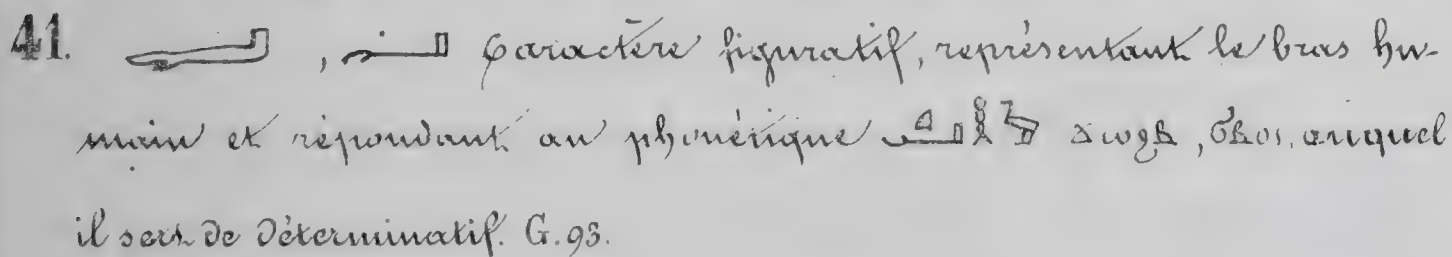 41. 𓂝 , 𓂝 Caractère figuratif, représentant le bras hu-
main et répondant au phonétique , ϭⲃⲟⲓ, auquel
il sert de déterminatif. G. 93.